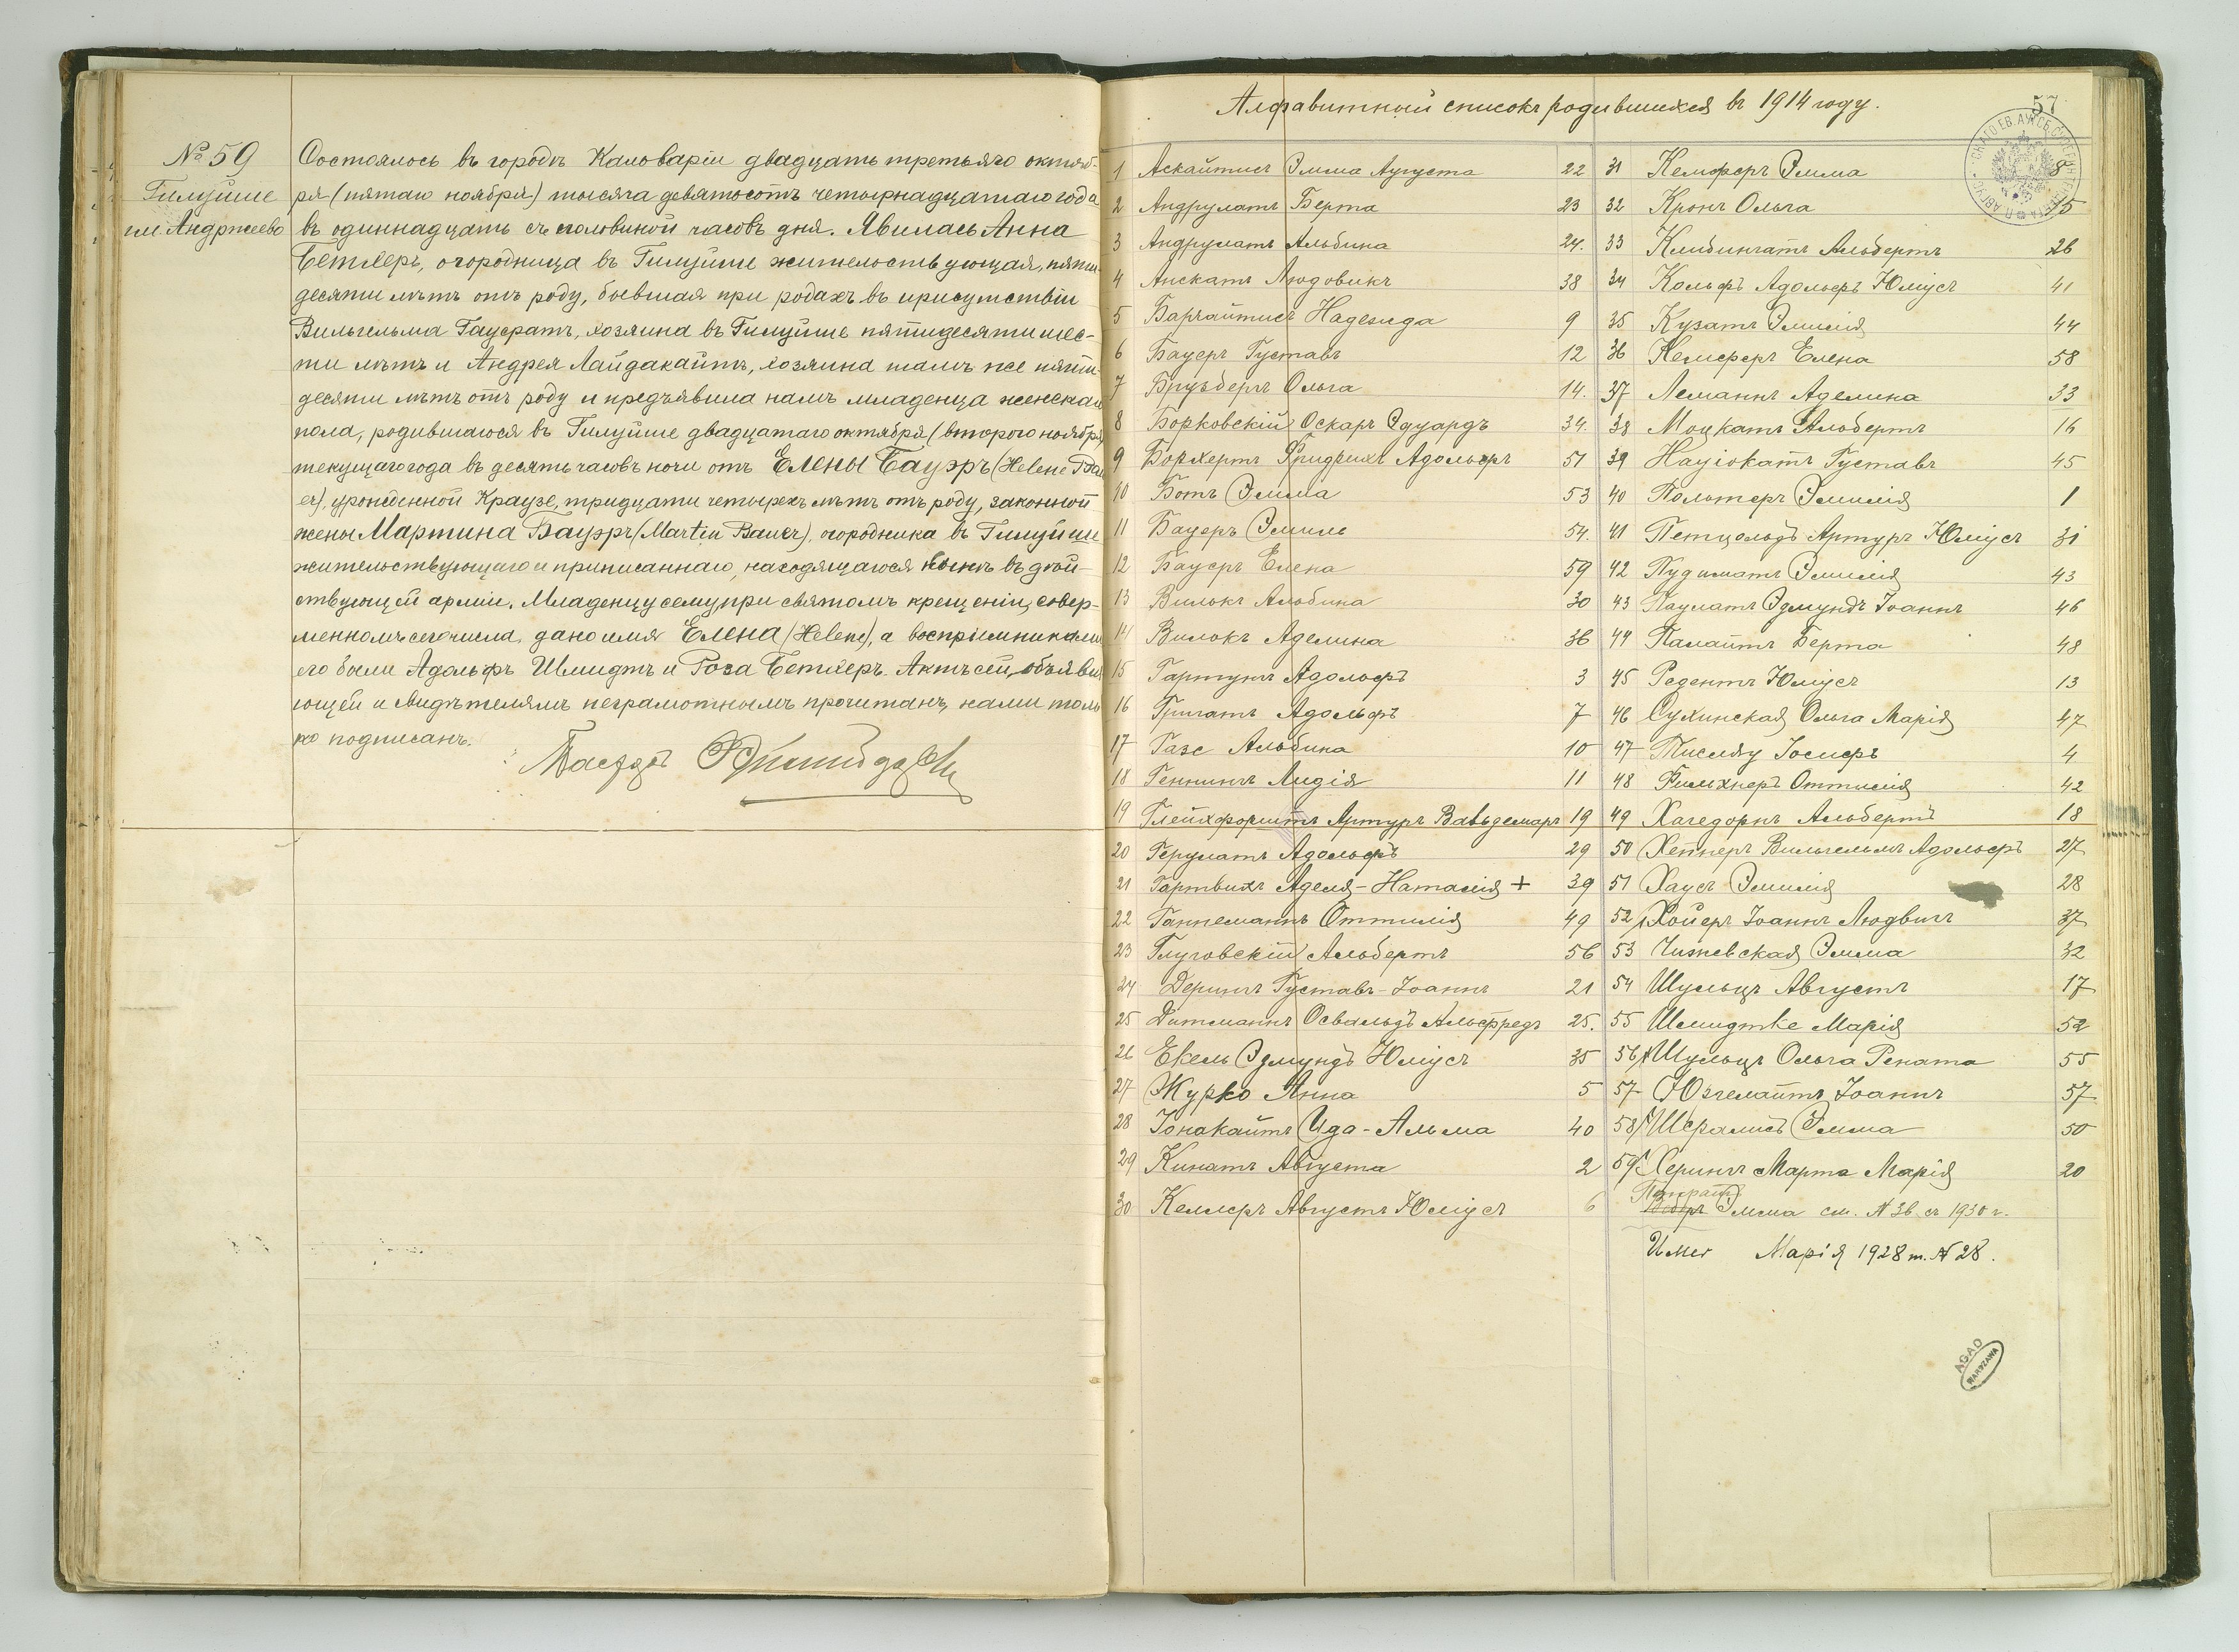 № 59
Гилуйше
гм. Андржеево
Состоялось въ городѣ Кальваріи двадцать третьяго октяб-
ря (пятаго ноября) тысяча девятьсотъ четырнадцатаго года
въ одиннадцать съ половиной часовъ дня. Явилась Анна
Бетхеръ, огородница въ Гилуйше жительствующая, пяти-
десяти лѣтъ отъ роду, бывшая при родахъ въ присутствіи
Вильгельма Гаусратъ, хозяина въ Гилуйше пятидесяти шес-
ти лѣтъ и Андрея Лайдакайтъ, хозяина тамъ же пяти-
десяти лѣтъ отъ роду и предъявила намъ младенца женскаго
пола, родившагося въ Гилуйше двадцатаго октября (второго ноября)
текущаго года въ десять часовъ ночи отъ Елены Бауэръ (Helene Bau
er), урожденной Краузе, тридцати четырехъ лѣтъ отъ роду, законной
жены Мартина Бауэръ (Martin Bauer), огородника въ Гилуйше
жительствующаго и приписаннаго, находящагося нынѣ въ дѣй-
ствующей арміи. Младенцу сему при святомъ крещеніи, совер-
шенномъ сего числа, дано имя Елена (Helene), а воспріемниками
его были Адольфъ Шмидтъ и Роза Бетхеръ. Актъ сей, объявля
ющей и свидѣтелямъ неграмотнымъ прочитанъ, нами толь
ко подписанъ.
Пасторъ
57
Алфавитный списокъ родившихся въ 1914 году.
1 Аскайтисъ Эмма Аугуста 22
2 Андрулатъ Берта 23
3 Андрулатъ Альбина 24.
4 Анскатъ Людовикъ 38
5 Баргайтисъ Надежда 9
6 Бауеръ Густавъ 12
7 Брузбергъ Ольга 14.
8 Борковскій Оскаръ Эдуардъ 34.
9 Борхертъ Фридрихъ Адольфъ 51
10 Ботъ Эмма 53
11 Бауеръ Эмиль 54.
12 Бауеръ Елена 59
13 Вилькъ Альбина 30
14 Вилькъ Аделина 36
15 Гартунгъ Адольфъ 3
16 Григатъ Адольфъ 7
17 Газе Альбина 10
18 Геннингъ Лидія 11
19 Глейхфорштъ Артуръ Вальдемаръ 19
20 Герулатъ Адольфъ 29
21 Гартвихъ Аделя-Наталія + 39
22 Ганнеманнъ Оттилія 49
23 Глуговскій Альбертъ 56
24 Дерингъ Густавъ-Іоаннъ 21
25 Дитманнъ Освальдъ Альфредъ 25.
26 Екель Эдмундъ Юліусъ 35
27 Журко Анна 5
28 Іонакайтъ Ида-Альма 40
29 Кинатъ Августа 2
30 Келлеръ Августъ Юліусъ 6
31 Кемферъ Эмма 8
32 Кронъ Ольга 15
33 Клибингатъ Альбертъ 26
34 Кольфъ Адольфъ Юліусъ 41
35 Кузатъ Эмилія 44
36 Кемферъ Елена 58
37 Леманнъ Аделина 33
38 Моцкатъ Альбертъ 16
39 Науіокатъ Густавъ 45
40 Польтеръ Эмилія 1
41 Петцельдъ Артуръ Юліусъ 31
42 Пудиматъ Эмилія 43
43 Паулатъ Эдмундъ Іоаннъ 46
44 Палайтъ Берта 48
45 Редентъ Юліусъ 13
46 Сухинская Ольга Марія 47
47 Тислау Іосифъ 4
48 Фильхнеръ Оттилія 42
49 Хагедорнъ Альбертъ 18
50 Хепнеръ Вильгельмъ Адольфъ 27
51 Хаусъ Эмилія 28
52 Хойеръ Іоаннъ Людвигъ 37
53 Чижевская Эмма 32
54 Шульцъ Августъ 17
55 Шмидтке Марія 52
56 Шульцъ Ольга Рената 55
57 Юзгелайтъ Іоаннъ 57
58 Шералисъ Эмма 50
59 Херингъ Марта Марія 20
Эмма см. № 36 съ 1930 г.
Марія 1928 г. № 28.
AGAD
WARSZAWA